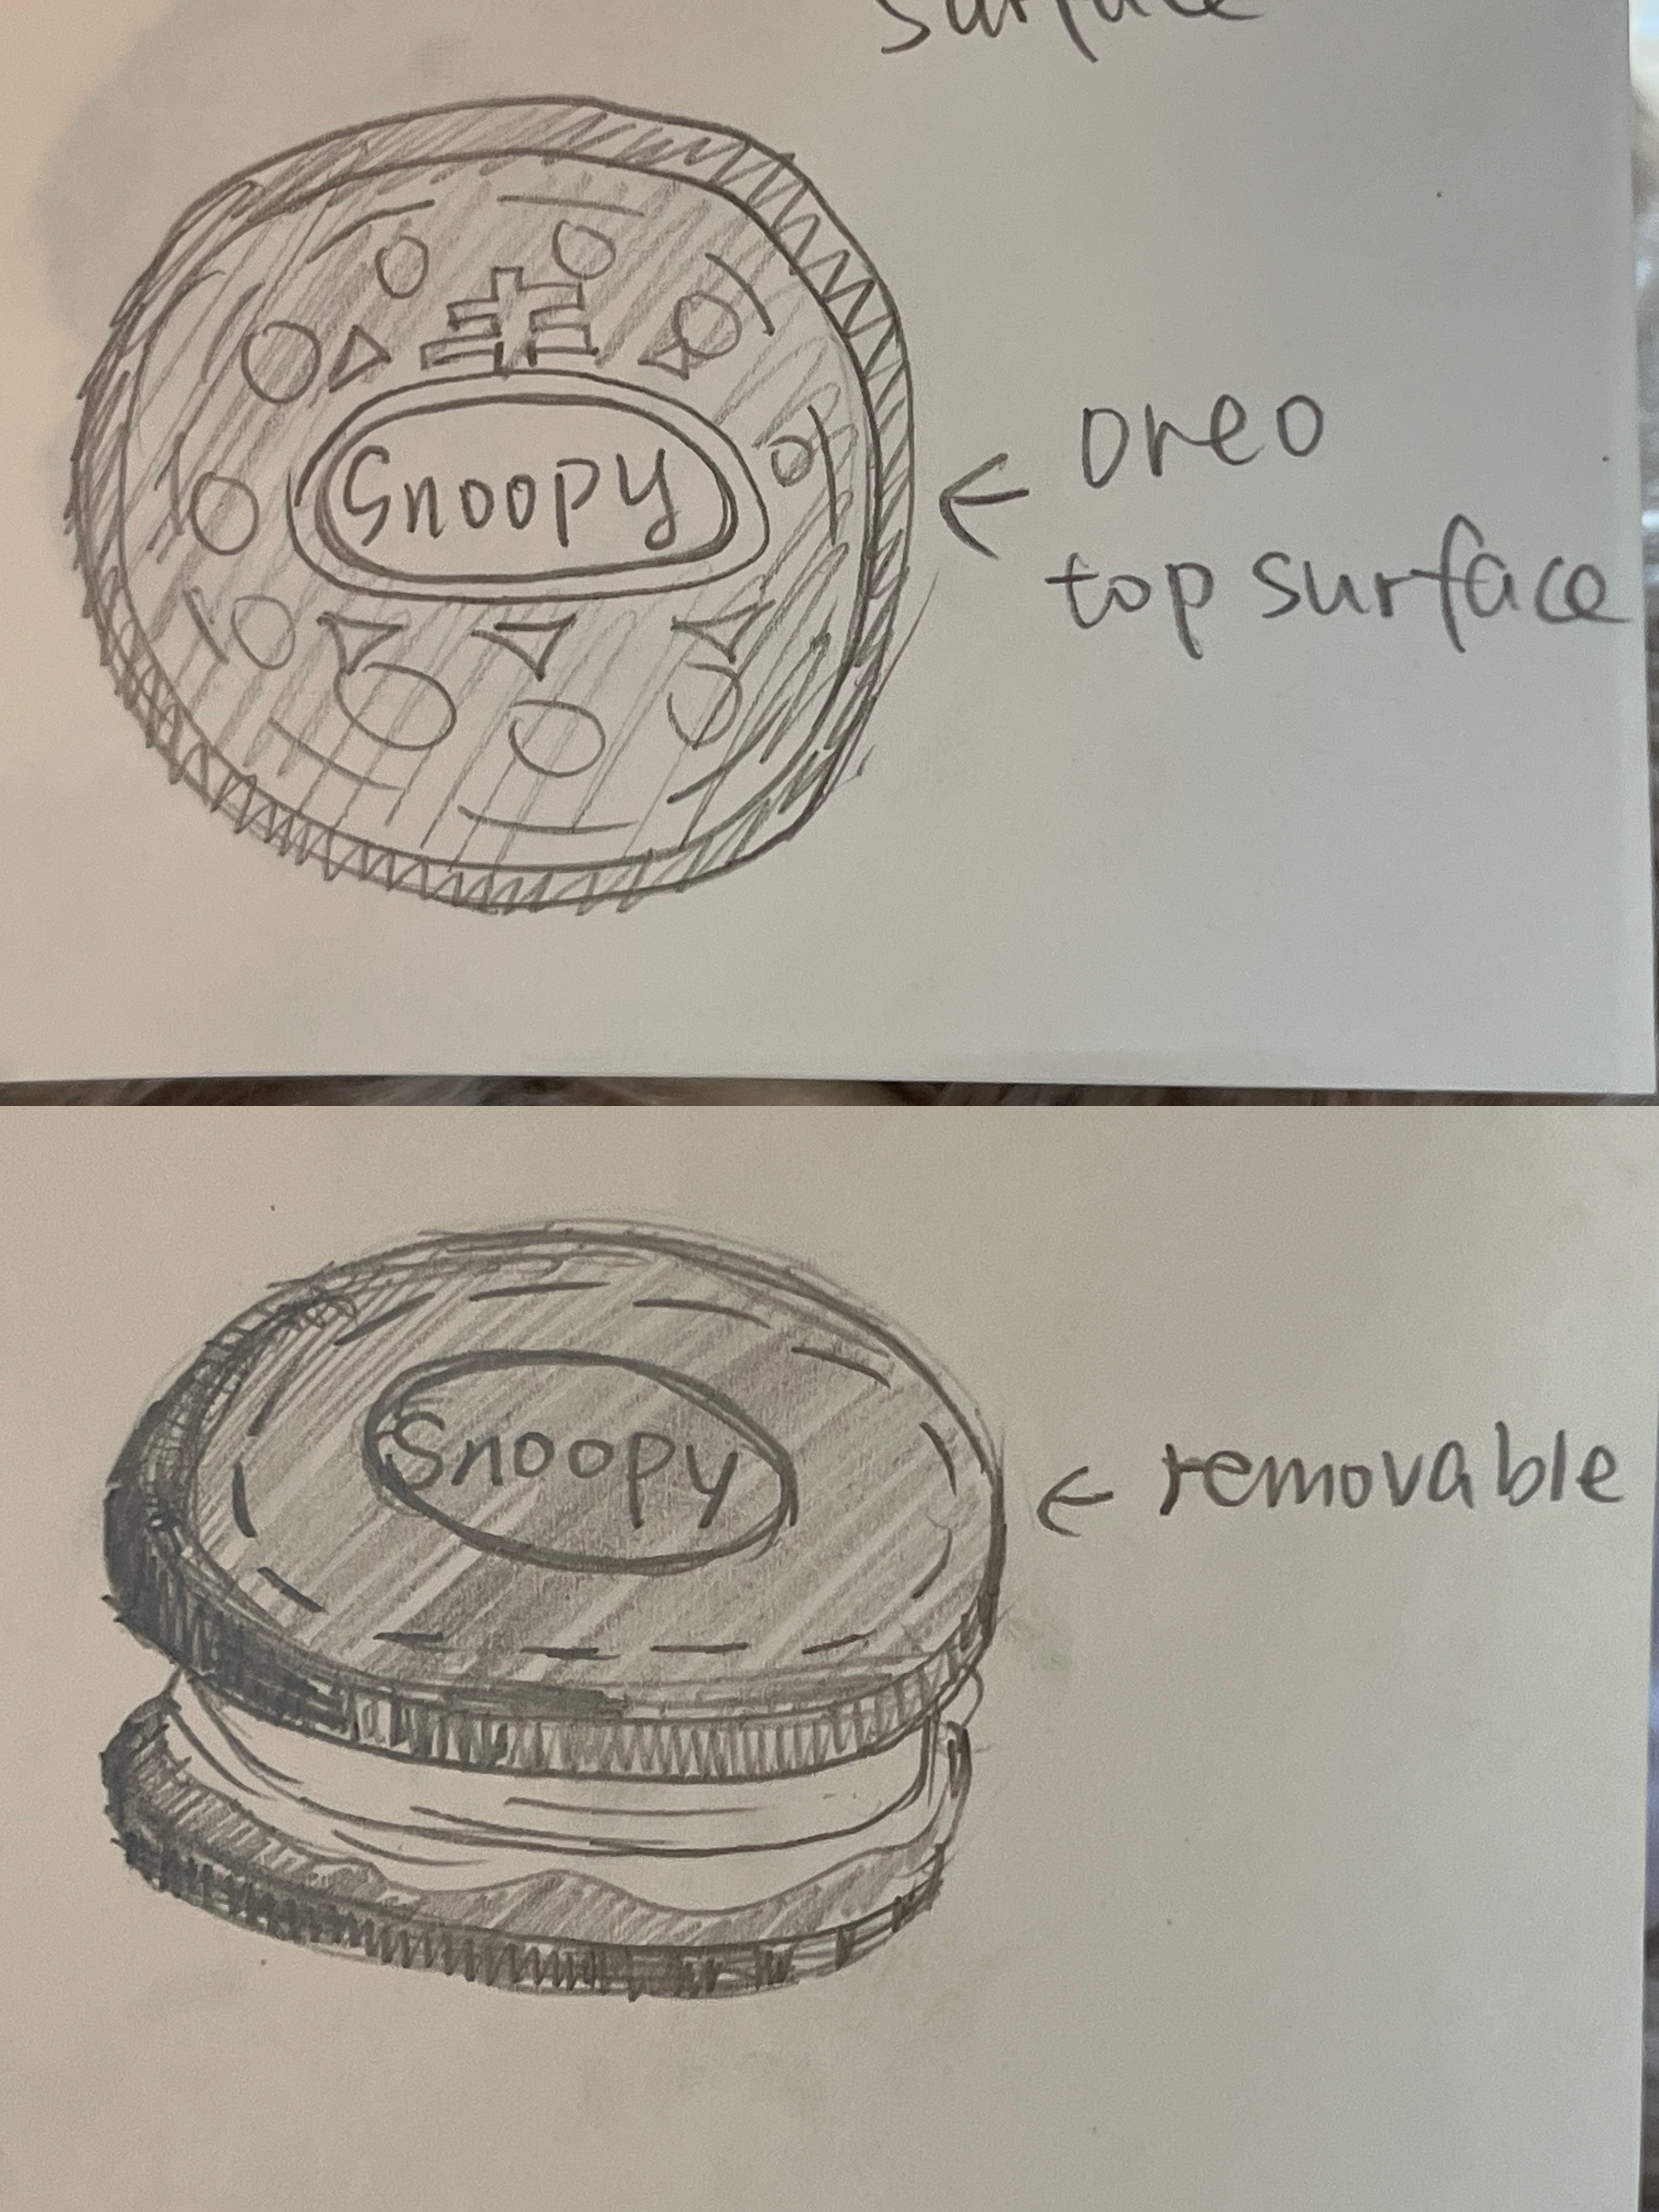 surface
Snoopy
oreo
top surface
Snoopy
removable